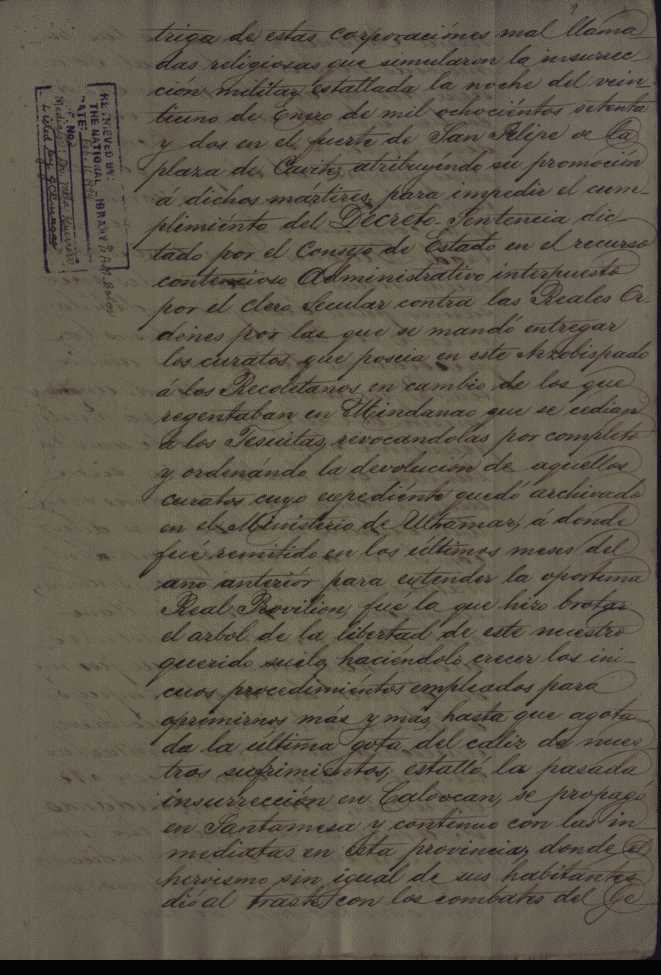 triga de estas corporaciónes mal llama
das religiosas que simularon la insurrec-
ción militar estallada la noche del vein-
tiuno de Enero de mil ochociéntos setenta
y dos en el fuerte de San Felipe de la
plaza de Cavite, atribuyéndo su promoción
á dichos mártires, para impedir el cum-
plimiénto del Decreto-Sentencia dic-
tado por el Consejo de Estado en el recurso
contencioso Administrativo interpuesto
por el clero Secular contra las Reales Or-
denes por las que se mandó entregar
los curatos que poseia en este Arzobispado
á los Recoletanos, en cambio de los que
regentaban en Mindanao que se cedian
a los Jesuitas, revocandolas por completo
y ordenándo la devolución de aquellos
curatos cuyo expediénte quedó archivado
en el Ministerio de Ultramar, á donde
fué remitido en los últimos meses del
ano anteriór para extender la oportuna
Real Provision, fue la que hizo brotar
el arbol de la libertad de este nuestro
querido suelo, haciéndolo crecer los ini-
cuos procedimiéntos empleados para
oprimirnos más y más, hasta que agota-
da la última gota del caliz de nues
tros sufrimientos, estalló la pasada
insurrección en Caloocan, se propagó
en Santamesa y continuo con las in
mediatas en esta provincia, donde el
heroismo sin igual de sus habitantes
dió al traste con los combates del Ge
RETRIEVED BY:
THE NATIONAL LIBRARY
DATE
Listed by